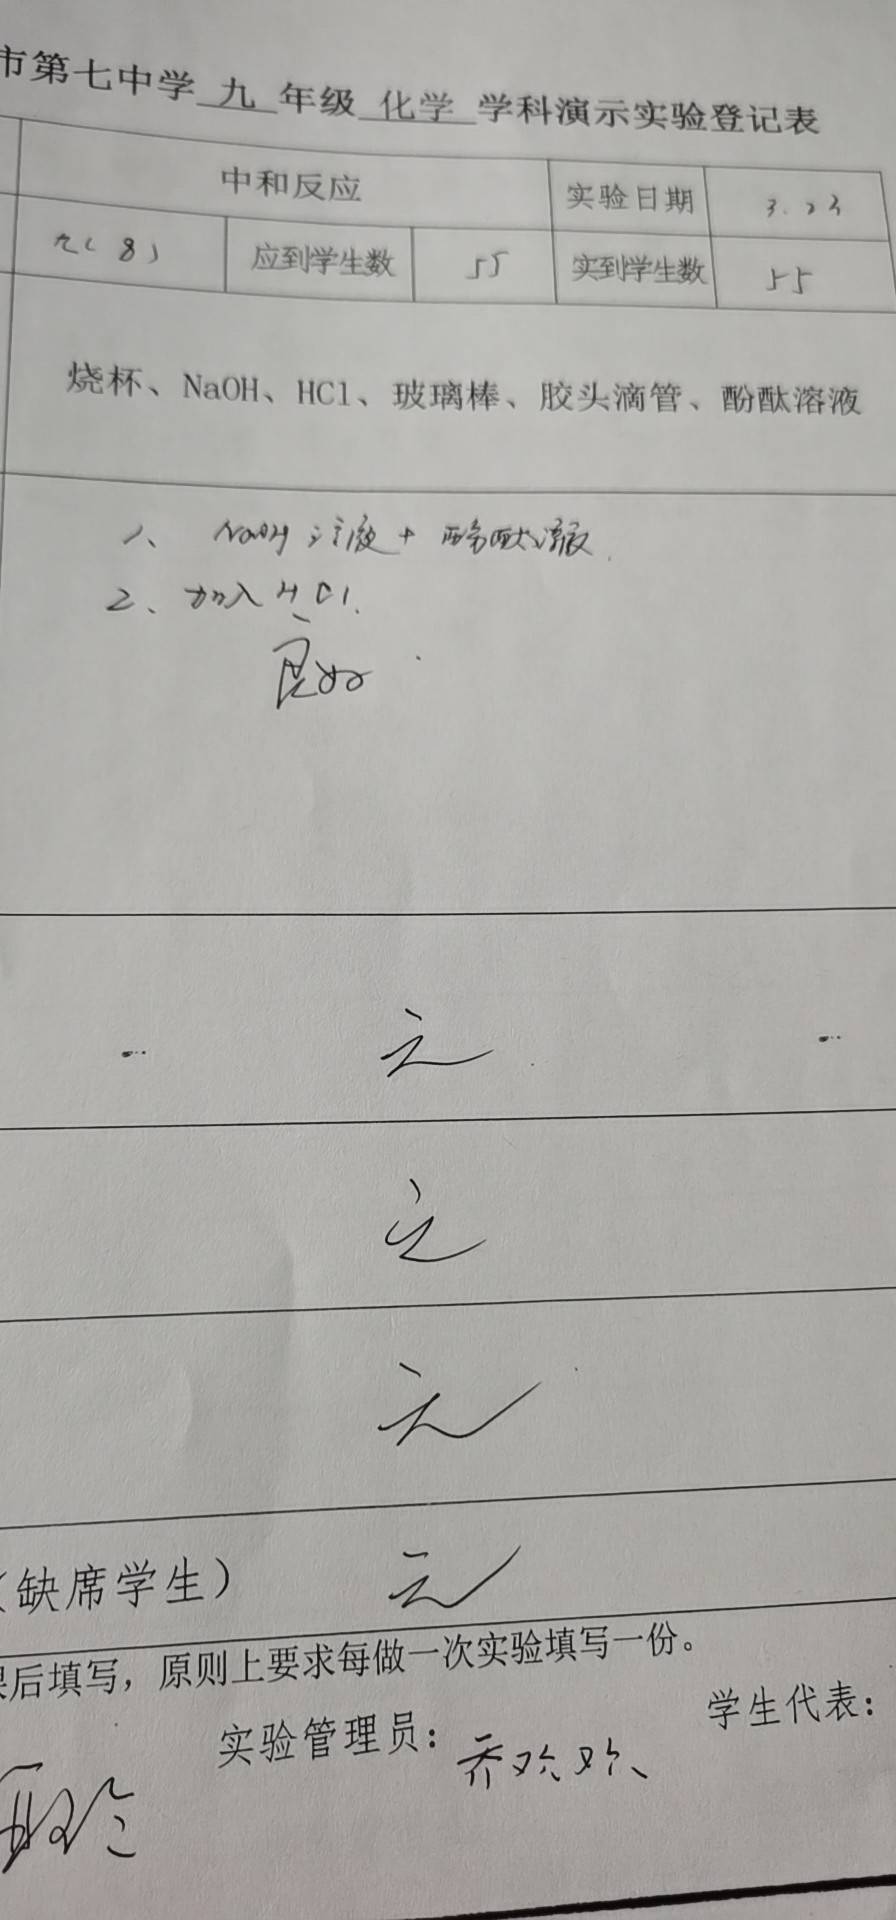 市第七中学 九 年级 化学 学科演示实验登记表
中和反应 实验日期 3.23
九(8) 应到学生数 55 实到学生数 55
烧杯、NaOH、HCl、玻璃棒、胶头滴管、酚酞溶液
1、 NaOH溶液+酚酞溶液.
2、加入HCl.
良好
无
无
无
(缺席学生) 无
课后填写，原则上要求每做一次实验填写一份。
实验管理员：乔欢欢、 学生代表：